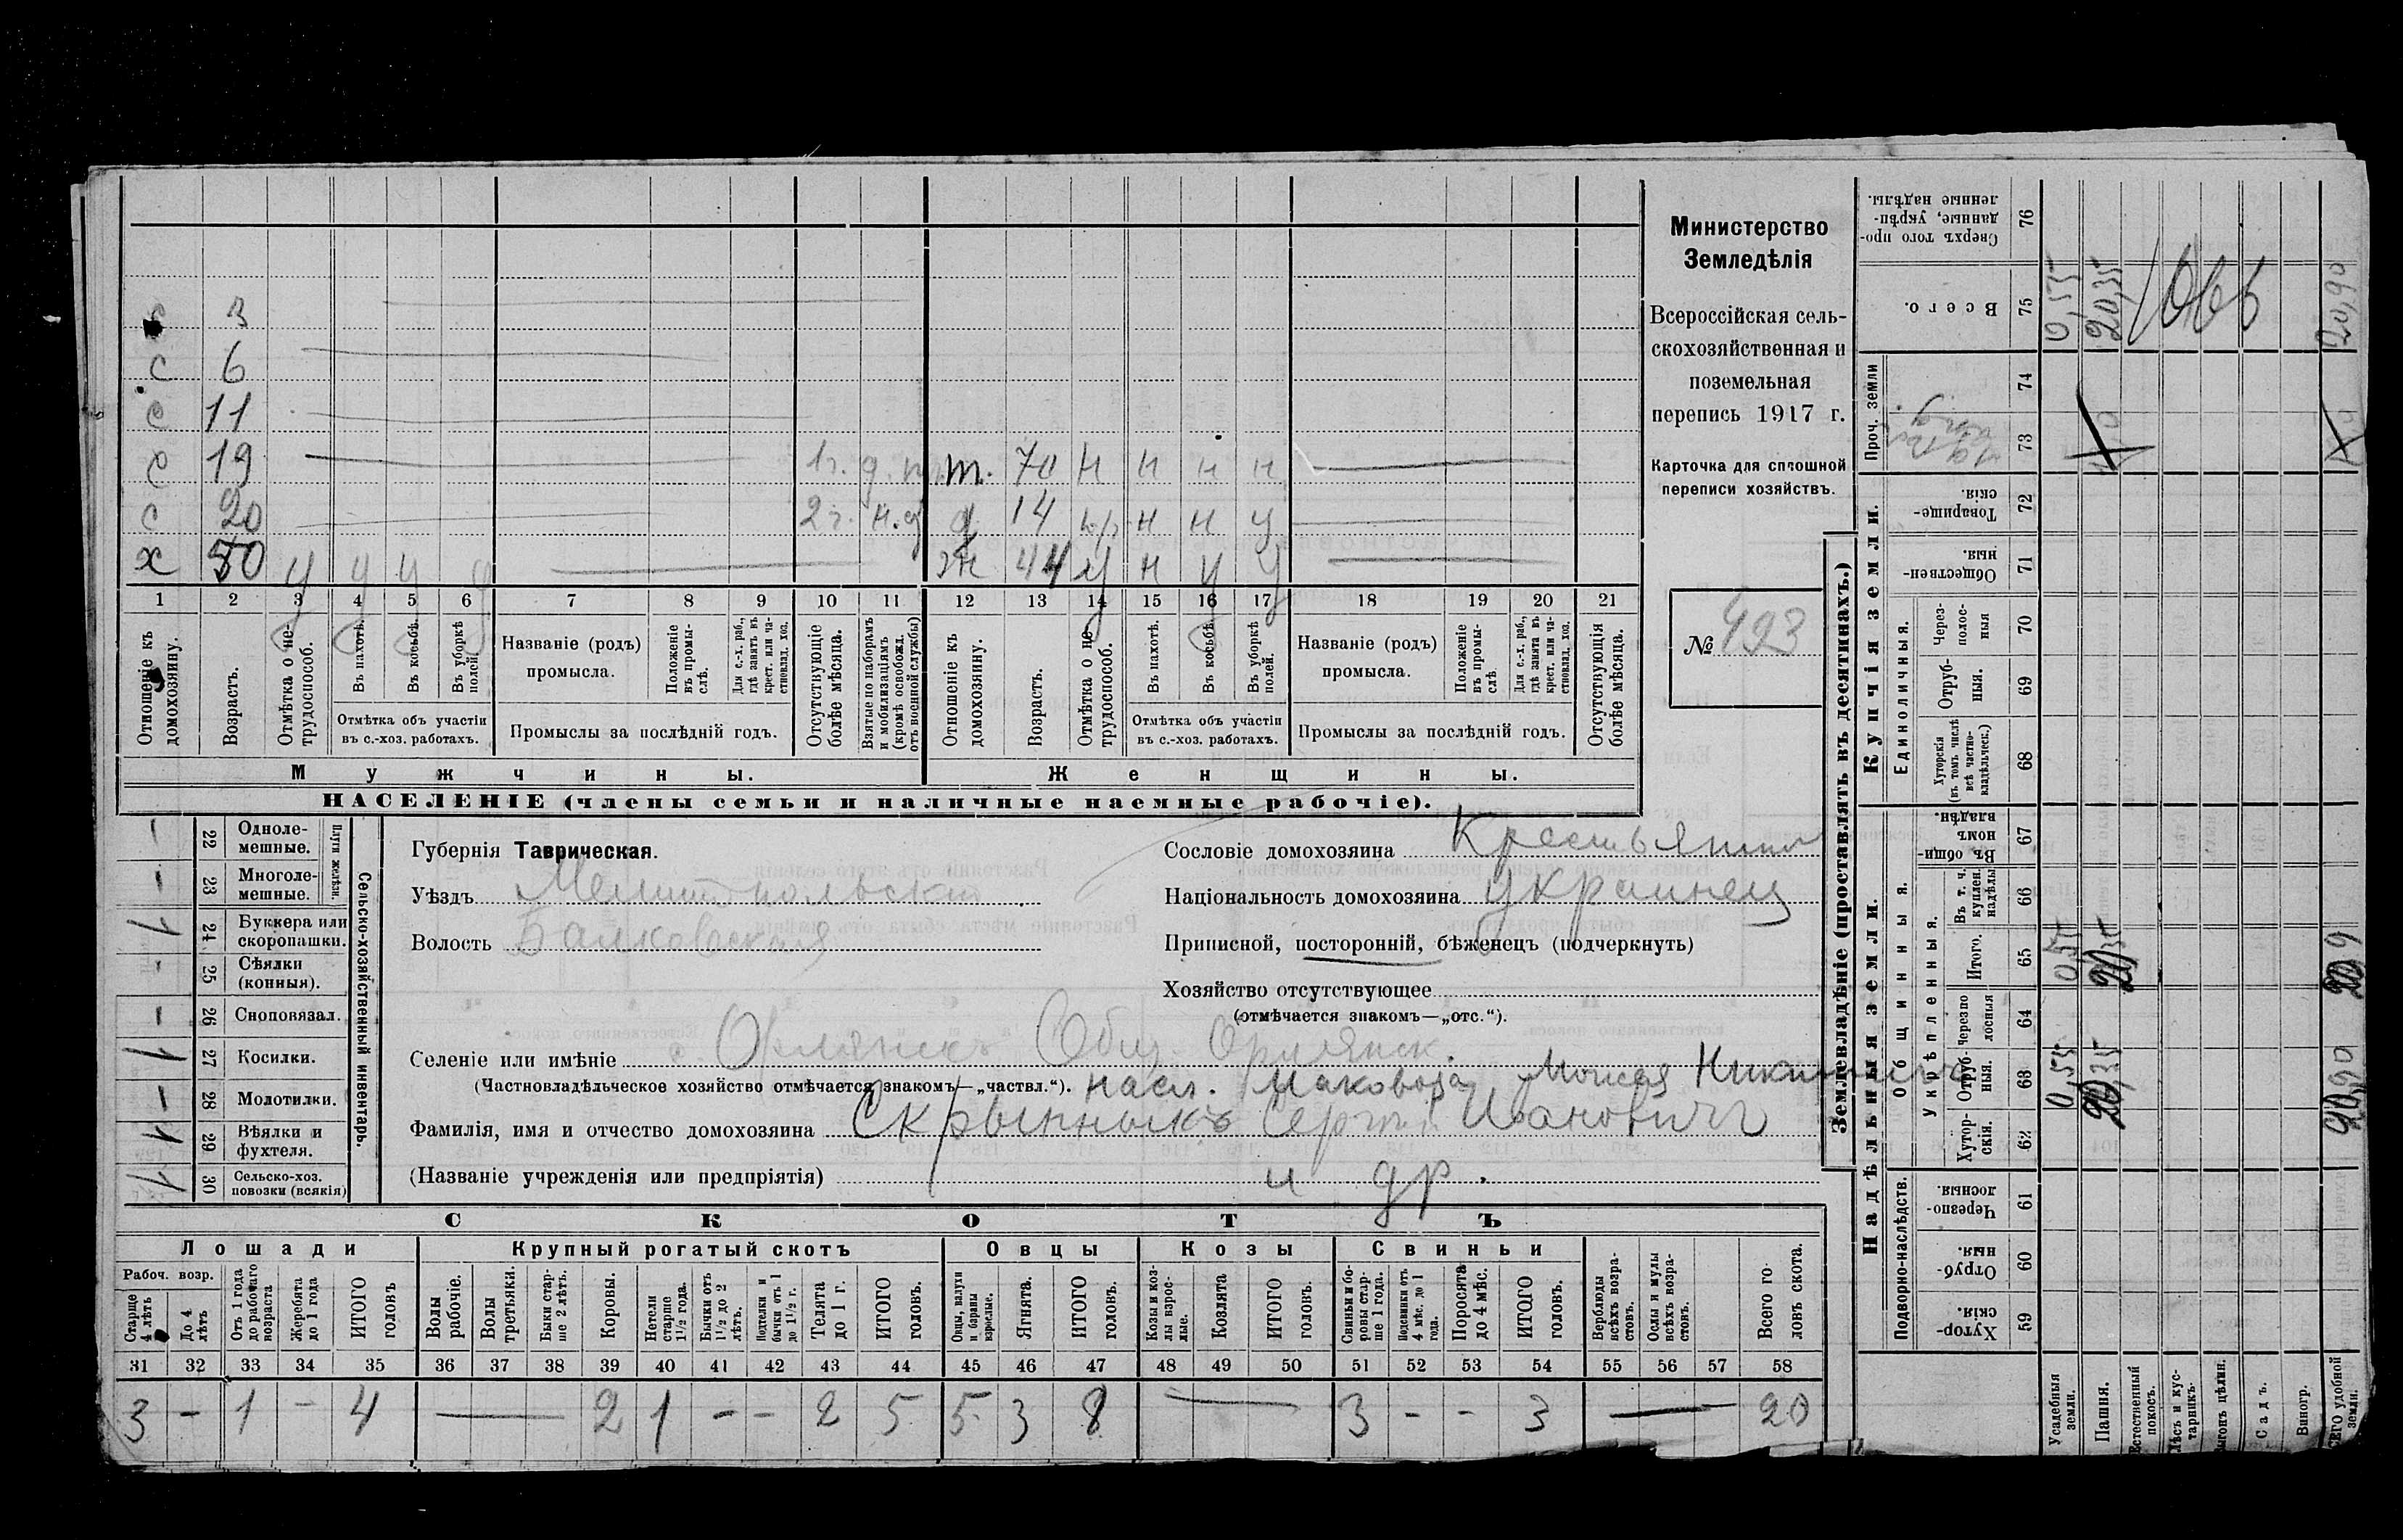 с 3
с 6
с 11
с 19 1 г. т. 70 н н н н
с 20 2 г. н.д д 14 н н у
х 50 у у у у ж 44 у н у у
1 2 3 4 5 6 7 8 9 10 11 12 13 14 15 16 17 18 19 20 21
Отношеніе къ домохозяину.
Возрастъ.
Отмѣтка о не-трудоспособ.
Въ пахотѣ.
Въ косьбѣ.
Въ уборкѣ полей.
Отмѣтка объ участіи
въ с.-хоз. работахъ.
Названіе (родъ)
промысла.
Положеніе въ промы-слѣ.
Для с.-х. раб., гдѣ занятъ въ крест. или ча-стновлад. хоз.
Промыслы за послѣдній годъ.
Отсутствующіе болѣе мѣсяца.
Взятые по наборамъ и мобилизаціямъ (кромѣ освобожд. отъ военной службы)
Отношеніе къ домохозяину.
Возрастъ.
Отмѣтка о не-трудоспособ.
Въ пахотѣ.
Въ косьбѣ.
Въ уборкѣ полей.
Отмѣтка объ участіи
въ с.-хоз. работахъ.
Названіе (родъ)
промысла.
Положеніе въ промы-слѣ
Для с.-х. раб., гдѣ занята въ крест. или ча-стновлад. хоз.
Промыслы за послѣдній годъ.
Отсутствующія болѣе мѣсяца.
Мужчины. Женщины.
НАСЕЛЕНІЕ (члены семьи и наличные наемные рабочіе).
Министерство
Земледѣлія
Всероссійская сель-
скохозяйственная и
поземельная
перепись 1917 г.
Карточка для сплошной
переписи хозяйствъ.
№ 423
Сельско-хозяйственный инвентарь.
Плуги желѣзн.
— 22 Одноле-мешные.
— 23 Многоле-мешные.
1 24 Буккера или скоропашки.
- 25 Сѣялки (конныя).
— 26 Сноповязал.
1 27 Косилки.
— 28 Молотилки.
1 29 Вѣялки и фухтеля.
1 30 Сельско-хоз. повозки (всякія)
Губернія Таврическая.
Уѣздъ Мелитопольскій
Волость Балковская
Сословіе домохозяина Крестьянин
Національность домохозяина украинец
Приписной, посторонній, бѣженецъ (подчеркнуть)
Хозяйство отсутствующее
(отмѣчается знакомъ—„отс.“).
Селеніе или имѣніе с. Орлянскъ Общ. Орлянск.
(Частновладѣльческое хозяйство отмѣчается знакомъ—„частвл.“). насл. Маковоза Моисея
Фамилія, имя и отчество домохозяина Скрынныкъ Сергѣй Ивановичъ
(Названіе учрежденія или предпріятія) и др.
СКОТЪ
Лошади Крупный рогатый скотъ Овцы Козы Свиньи
Рабоч. возр.
Старше 4 лѣтъ
До 4 лѣтъ
Отъ 1 года до рабочаго возраста
Жеребята до 1 года
ИТОГО головъ
Волы рабочіе.
Волы третьяки.
Быки стар-ше 2 лѣтъ.
Коровы.
Нетели старше 1½ года.
Бычки отъ 1½ до 2 лѣтъ.
Подтелки и бычки отъ 1 до 1½ г.
Телята до 1 г.
ИТОГО головъ.
Овцы, валухи и бараны взрослые.
Ягнята.
ИТОГО головъ.
Козы и коз-лы взрос-лые.
Козлята
ИТОГО головъ.
Свиньи и бо-ровы стар-ше 1 года.
Подсвинки отъ 4 мѣс. до 1 года.
Поросята до 4 мѣс.
ИТОГО головъ.
Верблюды всѣхъ возра-стовъ.
Ослы и мулы всѣхъ возра-стовъ.
Всего го-ловъ скота.
31 32 33 34 35 36 37 38 39 40 41 42 43 44 45 46 47 48 49 50 51 52 53 54 55 56 57 58
3 - 1 - 4 — 2 1 - - 2 5 5 3 8 — 3 - - 3 — 20
Землевладѣніе (проставлять въ десятинахъ.)
Купчія земли.
Надѣльныя земли.
Сверхъ того про-данные, укрѣп-ленные надѣлы. 76
Всего. 75 0,55 20,35 20,90
Проч. земли 74
73
Товарище-скія. 72
Обществен-ныя. 71
Единоличныя.
Через-полос-ныя 70
Отруб-ныя. 69
Хуторскія (въ томъ числѣ всѣ частно-владѣльческ.) 68
Общинныя.
Въ общин-номъ владѣн. 67
Укрѣпленныя.
Въ т. ч. куплен. надѣлы 66
Итого. 65 0,55
Черезпо лосныя 64
Отруб-ныя. 63 0,55 20,35
Хутор-скія. 62
Подворно-наслѣдств.
Черезпо-лосныя. 61
Отруб-ныя. 60
Хутор-скія. 59
Усадебныя земли.
Пашня.
Естественный покосъ.
Лѣсъ и кус-тарникъ.
Выгонъ цѣлин.
Садъ.
Виногр.
ВСЕГО удобной земли.